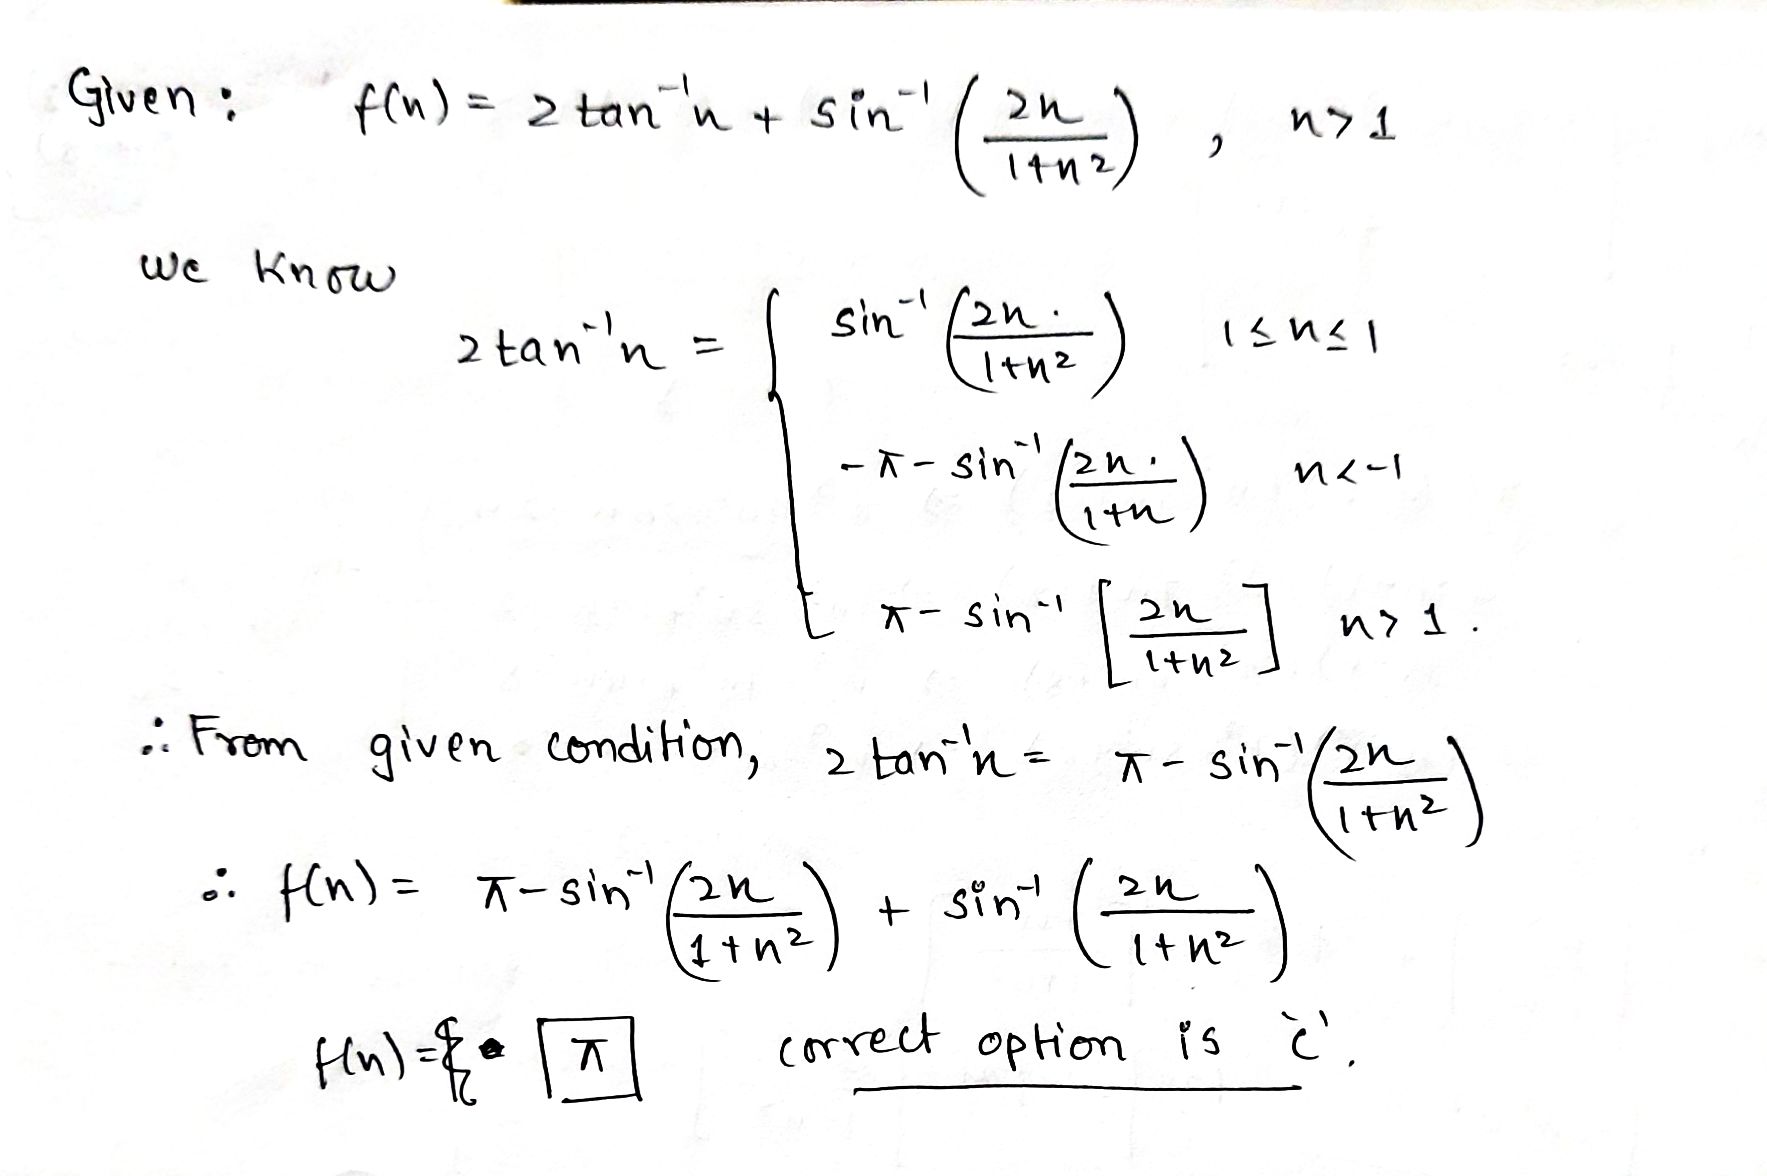 Given : f(n) = 2 tan⁻¹n + sin⁻¹ (2n / 1+n²) , n>1
we know
2 tan⁻¹n = { sin⁻¹ (2n. / 1+n²) 1≤n≤1
-π - sin⁻¹ (2n. / 1+n) n<-1
π - sin⁻¹ [2n / 1+n²] n>1.
∴ From given condition, 2 tan⁻¹n = π - sin⁻¹ (2n / 1+n²)
∴ f(n) = π - sin⁻¹ (2n / 1+n²) + sin⁻¹ (2n / 1+n²)
f(n) = π correct option is 'c'.